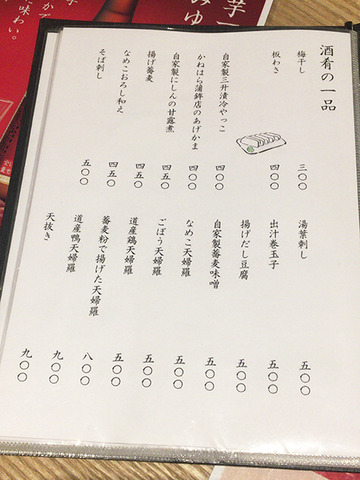 酒肴の一品
梅干し 三〇〇
板わさ 四〇〇
自家製三升漬冷やっこ 四五〇
かねはら蒲鉾店のあげかま 四五〇
自家製にしんの甘露煮 四五〇
揚げ蕎麦 四五〇
なめこおろし和え 四五〇
そば刺し 五〇〇
湯葉刺し 五〇〇
出汁巻玉子 五〇〇
揚げだし豆腐 五〇〇
自家製蕎麦味噌 五〇〇
なめこ天婦羅 五〇〇
ごぼう天婦羅 五〇〇
道産鶏天婦羅 五〇〇
蕎麦粉で揚げた天婦羅 八〇〇
道産鴨天婦羅 九〇〇
天抜き 九〇〇
味わい。